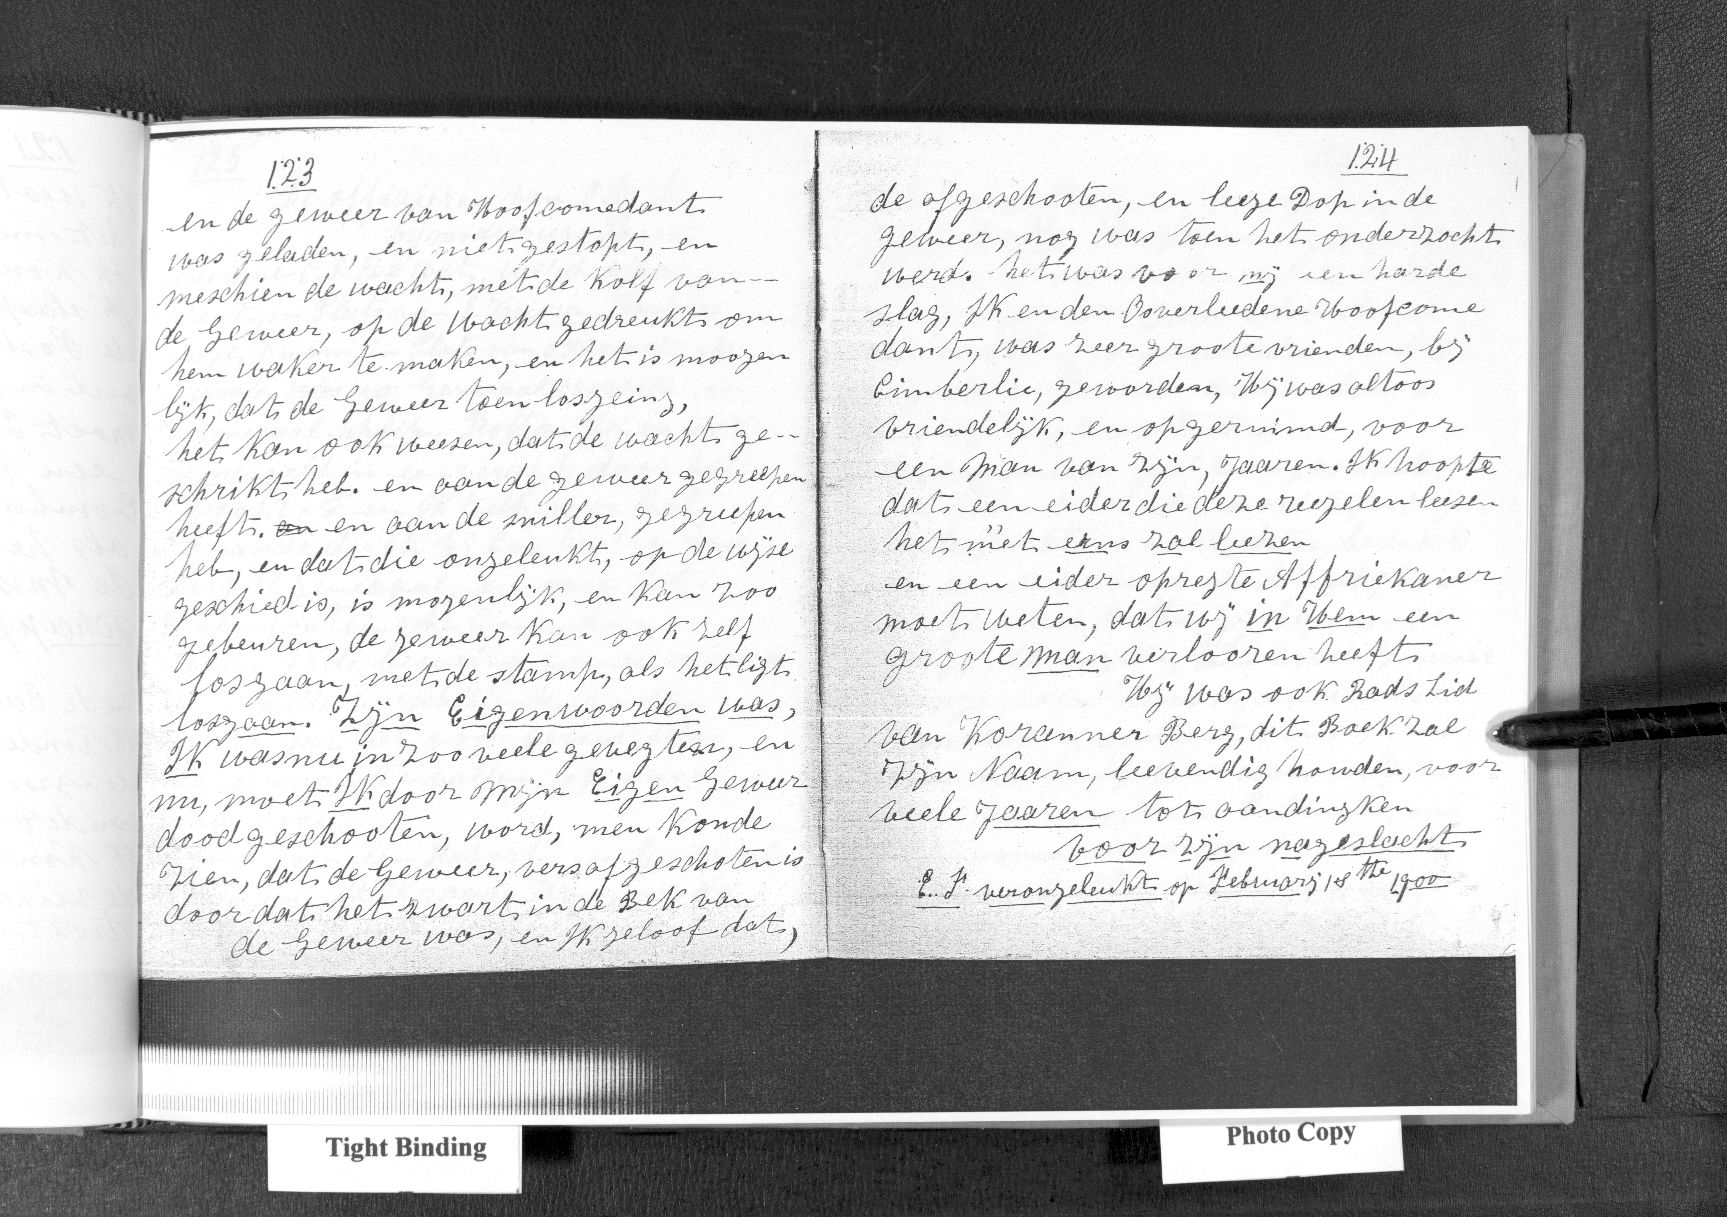 123
en de geweer van Hoofcomedant
was geladen, en niet gestopt, en
meschien de wacht, met de Kolf van --
de Geweer, op de wacht gedreukt om
hem waker te maken, en het is moogen
lijk, dat de Geweer toen losgeing,
het Kan ook weesen, dat de wacht ge --
schrikt heb. en aan de geweer gegreepen
heeft. en aan de sniller, gegreepen
heb, en dat die ongeleukt, op de wijse
geschied is, is mogenlijk, en Kan zoo
gebeuren, de geweer Kan ook zelf
losgaan, met de stamp, als het ligt
losgaan. Zijn Eigenwoorden was,
IK was nu in zoo veele gevegten, en
nu, moet IK door Mijn Eigen Geweer
dood geschooten, word, men Konde
zien, dat de Geweer, vers afgeschoten is
door dat het zwart in de Bek van
de Geweer was, en IK geloof dat,
124
de afgeschooten, en leege Dop in de
geweer, nog was toen het onderzocht
werd. het was voor mij een harde
slag, IK en den Ooverleedene Hoofcome
dant, was zeer groote vrienden, bij
Cimberlie, geworden, Hij was altoos
vriendelijk, en opgeruimd, voor
een Man van Zijn, Jaaren. IK hoopte
dat een eider die deze reegelen leesen
het met erns zal leezen
en een eider opregte Affriekaner
moet weten, dat wij in Hem een
groote Man verlooren heeft
Hij was ook Rads Lid
van Koranner Berg, dit Boek zal
Zijn Naam, leevendig houden, voor
veele Jaaren tot aandingken
voor zijn nageslacht
E. F. verongeleukt op February 18 the 1900
Tight Binding
Photo Copy